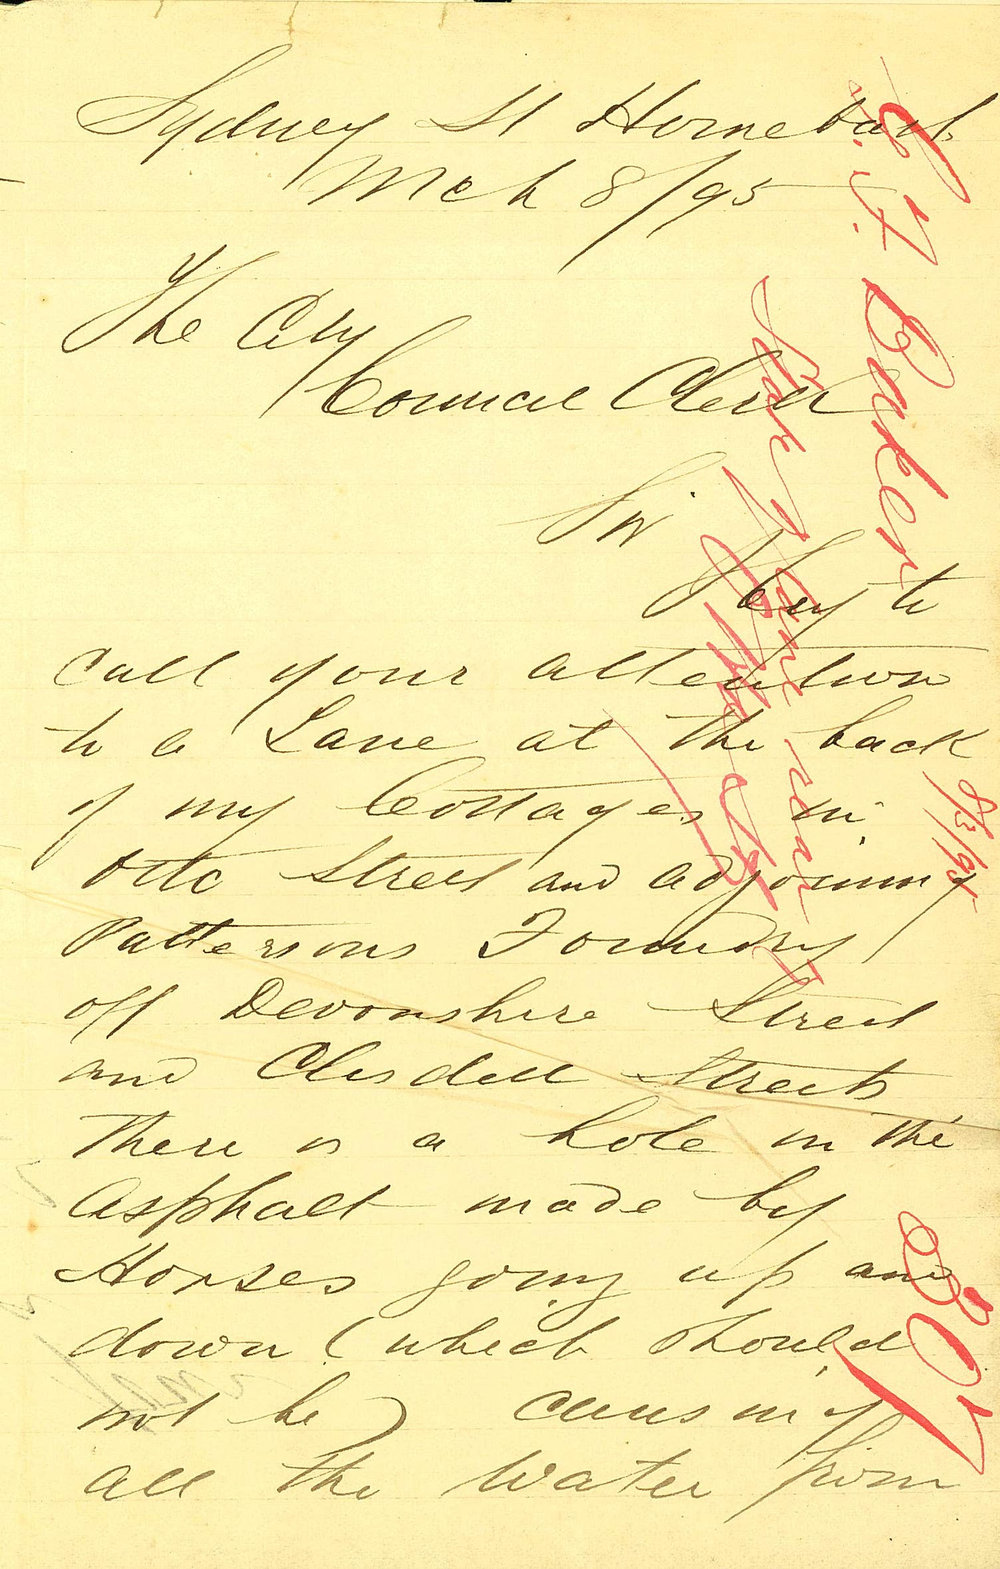 Sydney St Homebush
Mch 8/95
The City
Council Clerk
Sir
I beg to
call your attention
to a Lane at the back
of my Cottages in
Otto Street and adjoining
Pattersons Foundry
off Devonshire Street
and Clisdell Streets
There is a hole in the
Asphalt made by
Horses going up and
down (which should
not be) causing
all the Water from
Baker
State of Lane rear
8/3/95
807